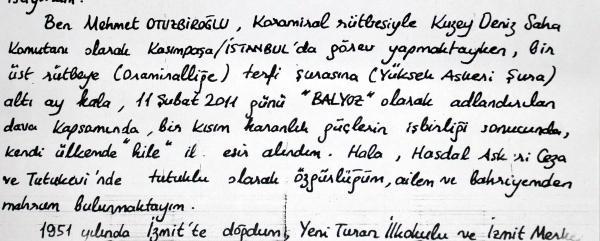 Ben Mehmet OTUZBİROĞLU, Koramiral rütbesiyle Kuzey Deniz Saha
Komutanı olarak Kasımpaşa/İSTANBUL'da görev yapmaktayken, bir
üst rütbeye (Oramiralliğe) terfi şurasına (Yüksek Askeri Şura)
altı ay kala, 11 Şubat 2011 günü "BALYOZ" olarak adlandırılan
dava kapsamında, bir kısım karanlık güçlerin işbirliği sonucunda,
kendi ülkemde "hile" il esir alındım. Hala, Hasdal Ask ri Ceza
ve Tutukevi'nde tutuklu olarak özgürlüğüm, ailem ve bahriyemden
mahrum bulunmaktayım.
1951 yılında İzmit'te doğdum, Yeni Turan İlkokulu ve İzmit Merke